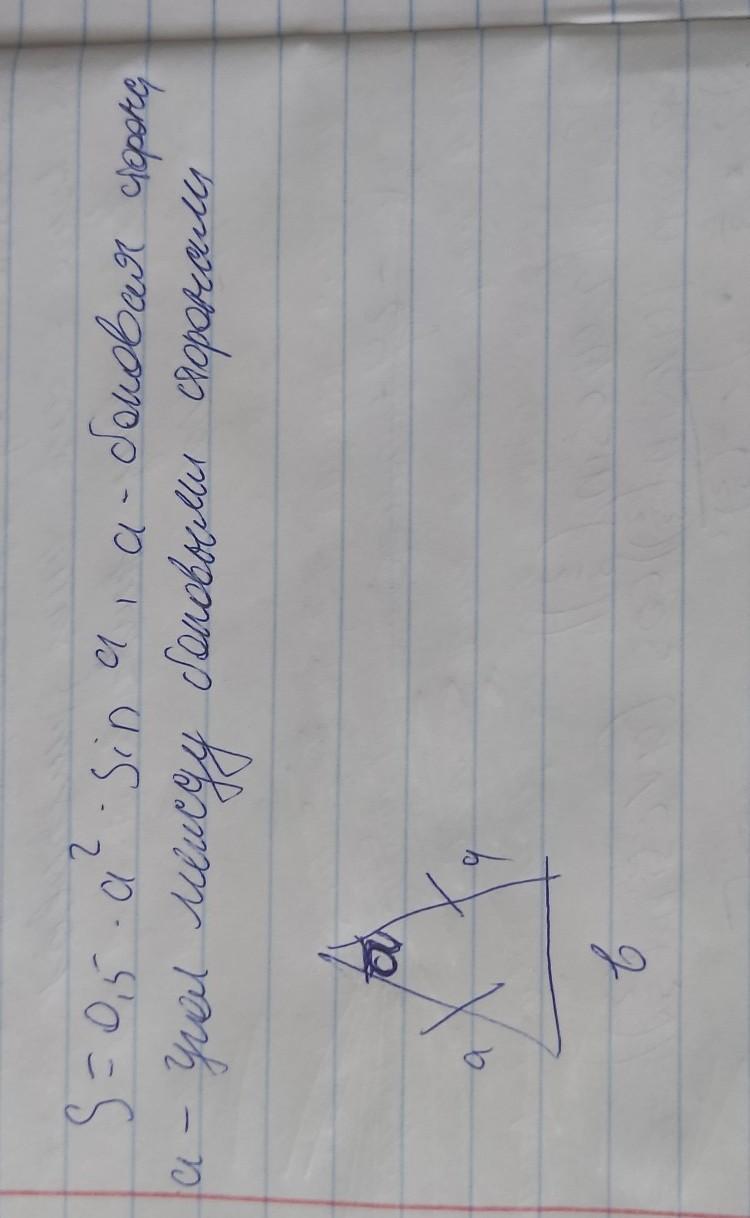 S = 0,5 · a² · sin a, a - боковая сторона
a - угол между боковыми сторонами
a
a a
b